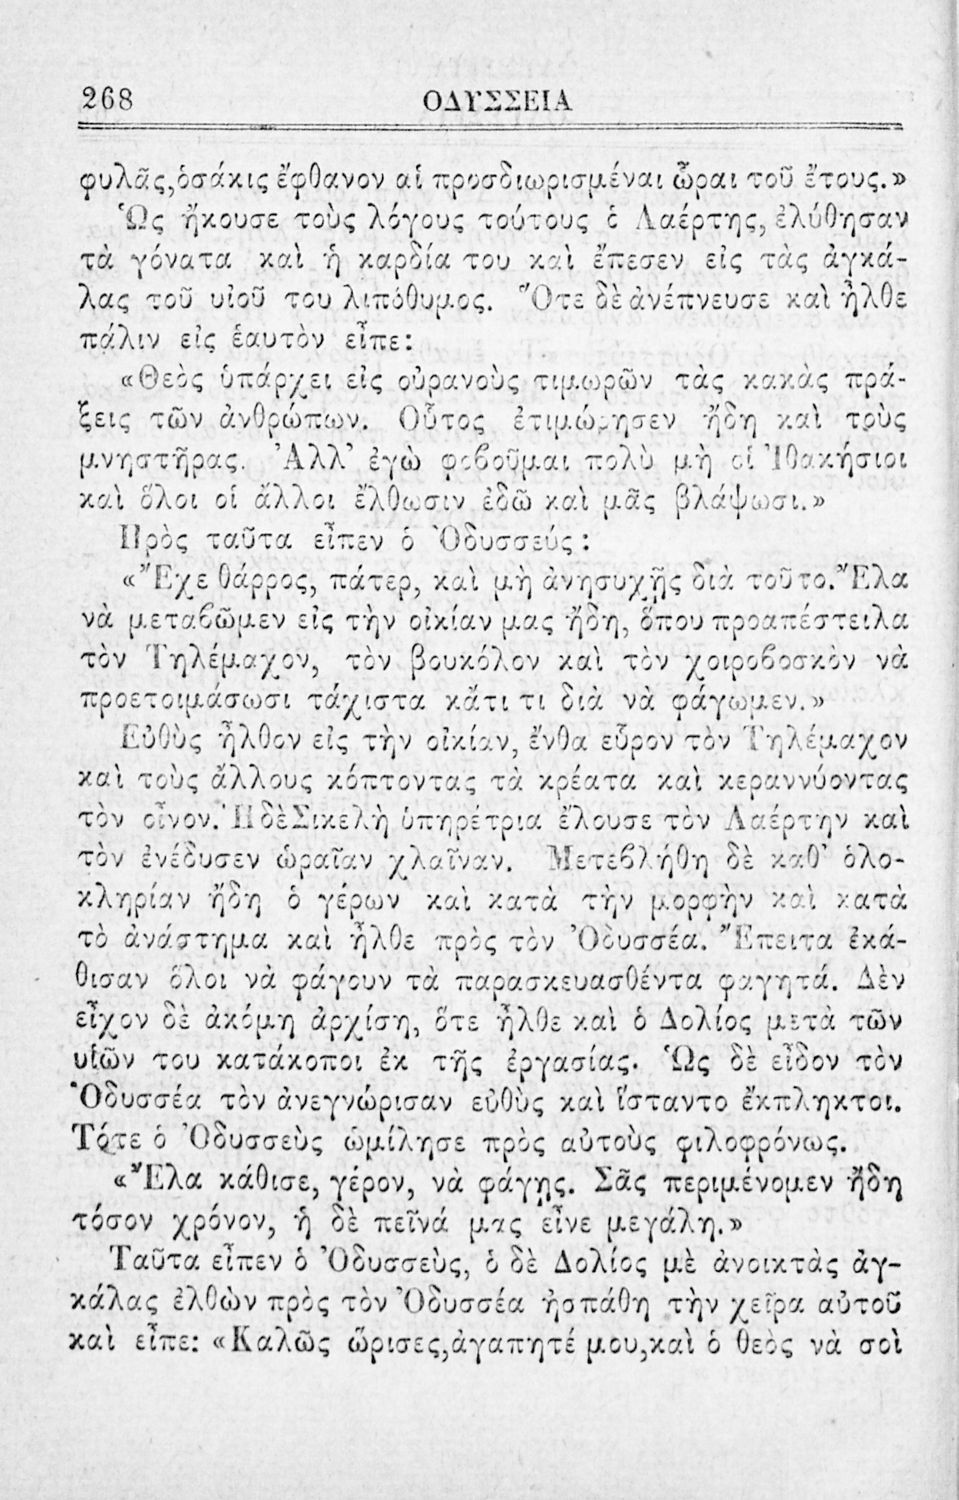 268 ΟΔΥΣΣΕΙΑ
φυλᾶς,ὁσάκις ἔφθανον αἱ προσδιωρισμέναι ὧραι τοῦ ἔτους.»
Ὡς ἤκουσε τοὺς λόγους τούτους ὁ Λαέρτης, ἐλύθησαν
τὰ γόνατα καὶ ἡ καρδία του καὶ ἔπεσεν εἰς τὰς ἀγκά-
λας τοῦ υἱοῦ του λιπόθυμος. Ὅτε δὲ ἀνέπνευσε καὶ ἦλθε
πάλιν εἰς ἑαυτὸν εἶπε:
«Θεὸς ὑπάρχει εἰς οὐρανοὺς τιμωρῶν τὰς κακὰς πρά-
ξεις τῶν ἀνθρώπων. Οὗτος ἐτιμώρησεν ἤδη καὶ τοὺς
μνηστῆρας. Ἀλλ’ ἐγὼ φοβοῦμαι πολὺ μὴ οἱ Ἰθακήσιοι
καὶ ὅλοι οἱ ἄλλοι ἔλθωσιν ἐδῶ καὶ μᾶς βλάψωσι.»
Πρὸς ταῦτα εἶπεν ὁ Ὀδυσσεύς:
«Ἔχε θάρρος, πάτερ, καὶ μὴ ἀνησυχῇς διὰ τοῦτο. Ἔλα
νὰ μεταβῶμεν εἰς τὴν οἰκίαν μας ἤδη, ὅπου προαπέστειλα
τὸν Τηλέμαχον, τὸν βουκόλον καὶ τὸν χοιροβοσκὸν νὰ
προετοιμάσωσι τάχιστα κἄτι τι διὰ νὰ φάγωμεν.»
Εὐθὺς ἦλθον εἰς τὴν οἰκίαν, ἔνθα εὗρον τὸν Τηλέμαχον
καὶ τοὺς ἄλλους κόπτοντας τὰ κρέατα καὶ κεραννύοντας
τὸν οἶνον. Ἡ δὲ Σικελὴ ὑπηρέτρια ἔλουσε τὸν Λαέρτην καὶ
τὸν ἐνέδυσεν ὡραῖαν χλαῖναν. Μετεβλήθη δὲ καθ’ ὁλο-
κληρίαν ἤδη ὁ γέρων καὶ κατὰ τὴν μορφὴν καὶ κατὰ
τὸ ἀνάστημα καὶ ἦλθε πρὸς τὸν Ὀδυσσέα. Ἔπειτα ἐκά-
θισαν ὅλοι νὰ φάγουν τὰ παρασκευασθέντα φαγητά. Δὲν
εἶχον δὲ ἀκόμη ἀρχίση, ὅτε ἦλθε καὶ ὁ Δολίος μετὰ τῶν
υἱῶν του κατάκοποι ἐκ τῆς ἐργασίας. Ὡς δὲ εἶδον τὸν
Ὀδυσσέα τὸν ἀνεγνώρισαν εὐθὺς καὶ ἵσταντο ἔκπληκτοι.
Τότε ὁ Ὀδυσσεὺς ὡμίλησε πρὸς αὐτοὺς φιλοφρόνως.
«Ἔλα κάθισε, γέρον, νὰ φάγῃς. Σᾶς περιμένομεν ἤδη
τόσον χρόνον, ἡ δὲ πεῖνά μας εἶνε μεγάλη.»
Ταῦτα εἶπεν ὁ Ὀδυσσεὺς, ὁ δὲ Δολίος μὲ ἀνοικτὰς ἀγ-
κάλας ἐλθὼν πρὸς τὸν Ὀδυσσέα ἠσπάθη τὴν χεῖρα αὐτοῦ
καὶ εἶπε: «Καλῶς ὥρισες,ἀγαπητέ μου,καὶ ὁ θεὸς νὰ σοὶ